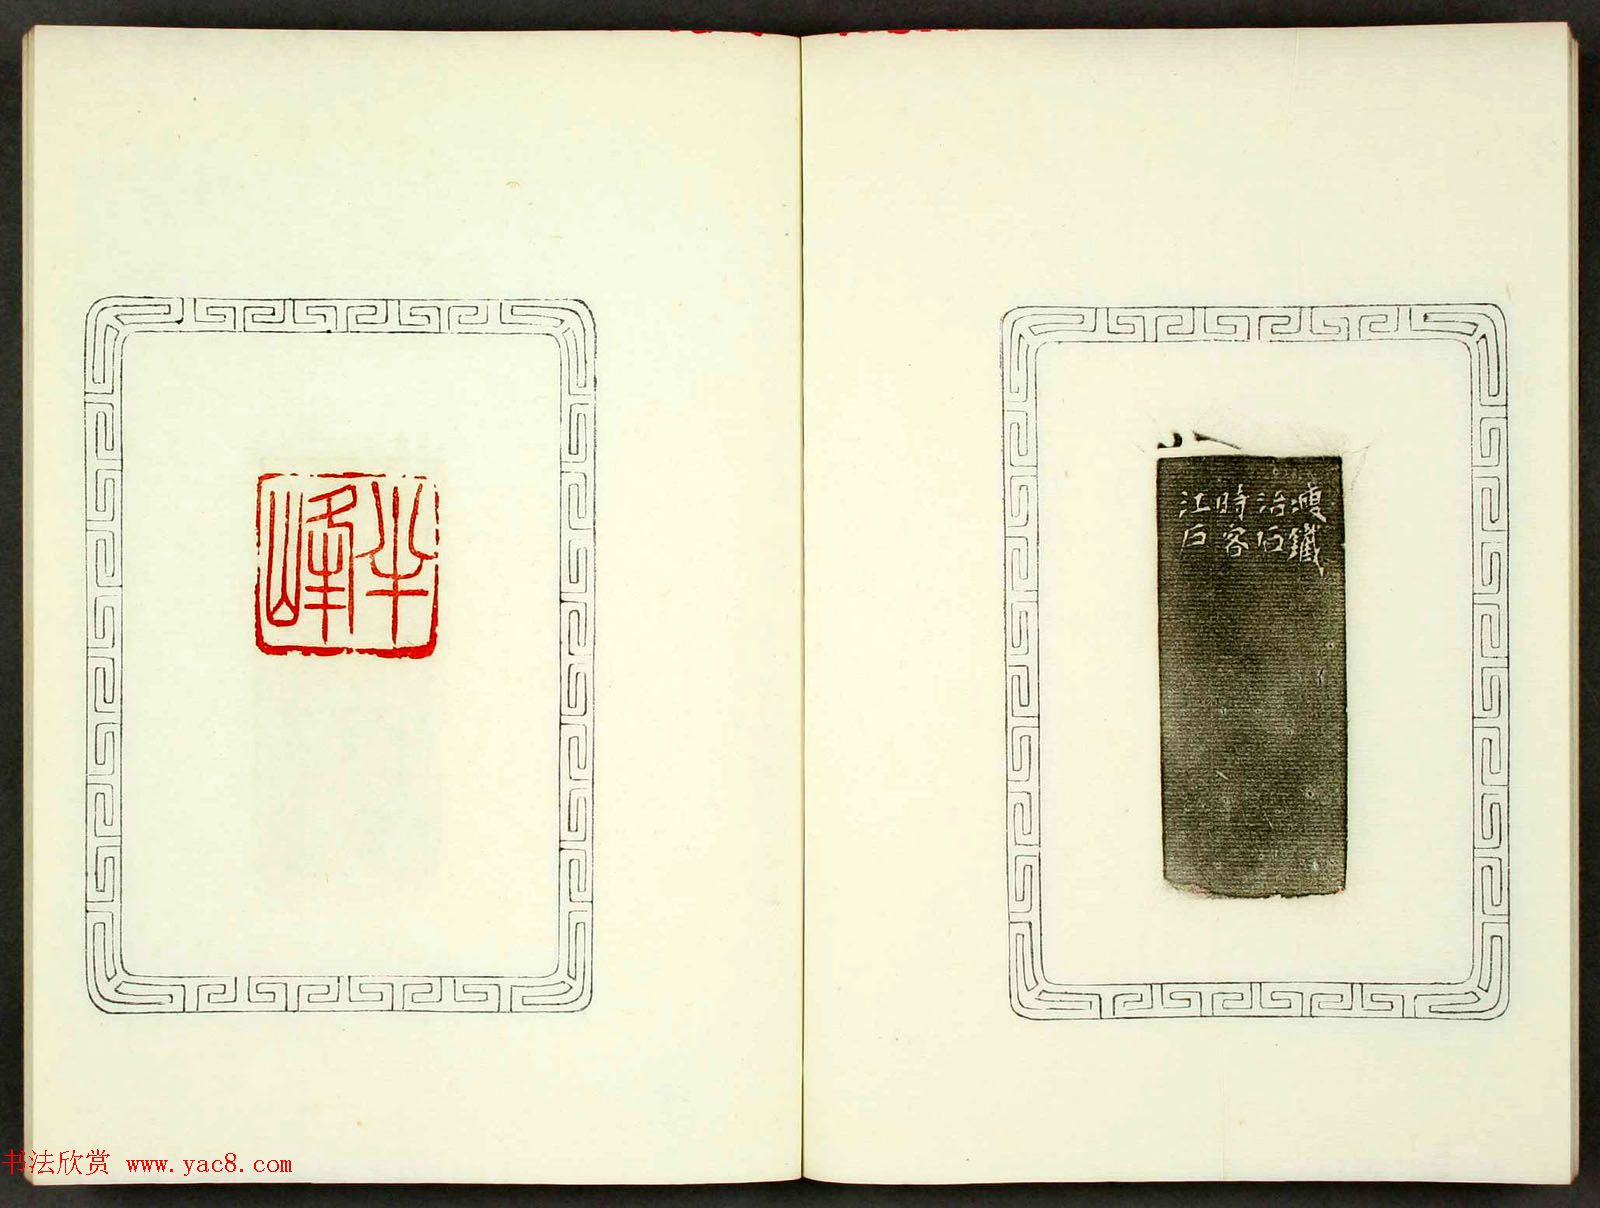 瘦鐵
治石
時客
江戶
半峰
书法欣赏 www.yac8.com